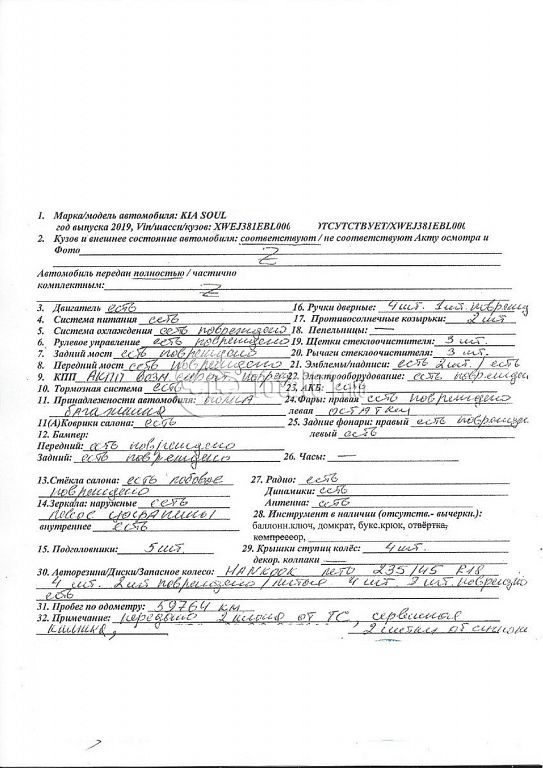 1. Марка/модель автомобиля: KIA SOUL
год выпуска 2019, Vin/шасси/кузов: XWEJ381EBL00 ОТСУТСТВУЕТ/XWEJ381EBL00
2. Кузов и внешнее состояние автомобиля: соответствуют / не соответствуют Акту осмотра и
Фото Z
Автомобиль передан полностью / частично
комплектным: Z
3. Двигатель есть 16. Ручки дверные: 4 шт. 1 шт. поврежд
4. Система питания есть 17. Противосолнечные козырьки: 2 шт
5. Система охлаждения есть повреждено 18. Пепельницы: —
6. Рулевое управление есть повреждено 19. Щетки стеклоочистителя: 3 шт.
7. Задний мост есть повреждено 20. Рычаги стеклоочистителя: 3 шт.
8. Передний мост есть повреждено 21. Эмблемы/надписи: есть 2 шт. / есть
9. КПП АКПП 22. Электрооборудование: есть поврежден
10. Тормозная система есть 23. АКБ: есть
11. Принадлежности автомобиля: полка 24. Фары: правая есть повреждено
багажника левая остатки
11(А)Коврики салона: есть 25. Задние фонари: правый есть
12. Бампер: левый есть
Передний: есть повреждено
Задний: есть повреждено 26. Часы: —
13.Стёкла салона: есть лобовое 27. Радио: есть
повреждено Динамики: есть
14.Зеркала: наружные есть Антенна: есть
28. Инструмент в наличии (отсутств.- вычеркн.):
внутреннее есть баллонн.ключ, домкрат, букс.крюк, отвёртка,
компрессор,
15. Подголовники: 5 шт. 29. Крышки ступиц колёс: 4 шт.
декор. колпаки —
30. Авторезина/Диски/Запасное колесо: HANKOOK лето 235/45 R18
4 шт. 2 шт повреждено / литые 4 шт. 3 шт. повреждено
есть
31. Пробег по одометру: 59764 км
32. Примечание: передано 2 ключа от ТС, сервисная
книжка,